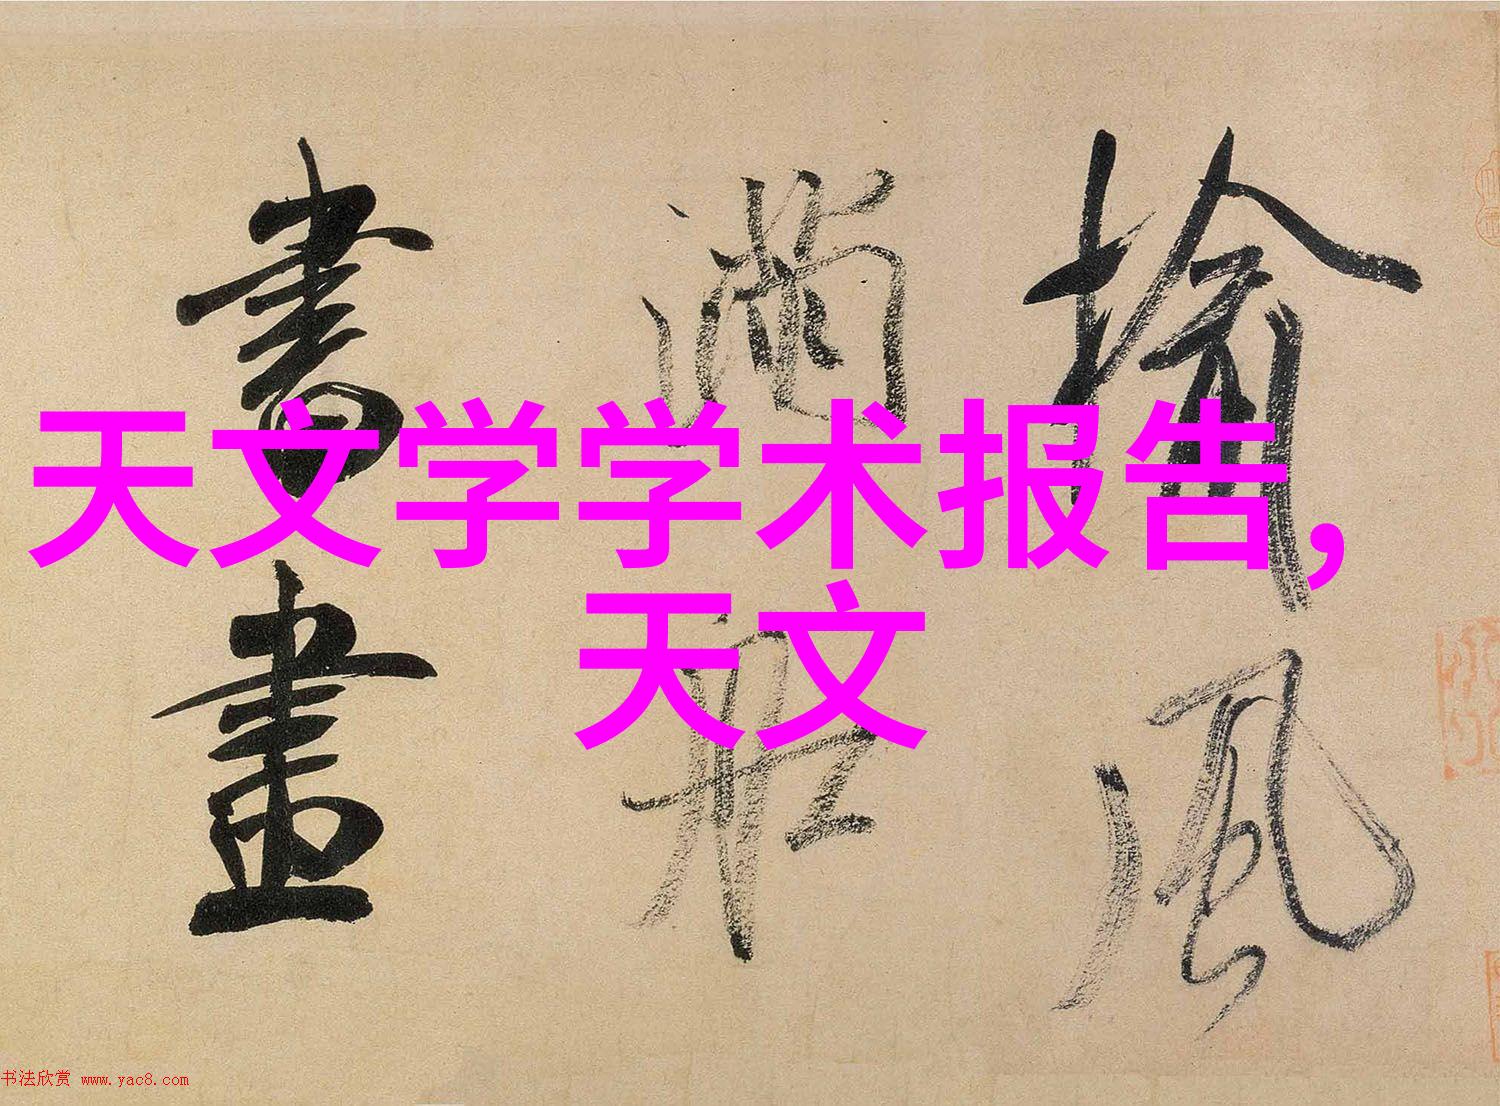 揄風
滿船
書畫
天文学学术报告,
天文
书法欣赏 www.yac8.com